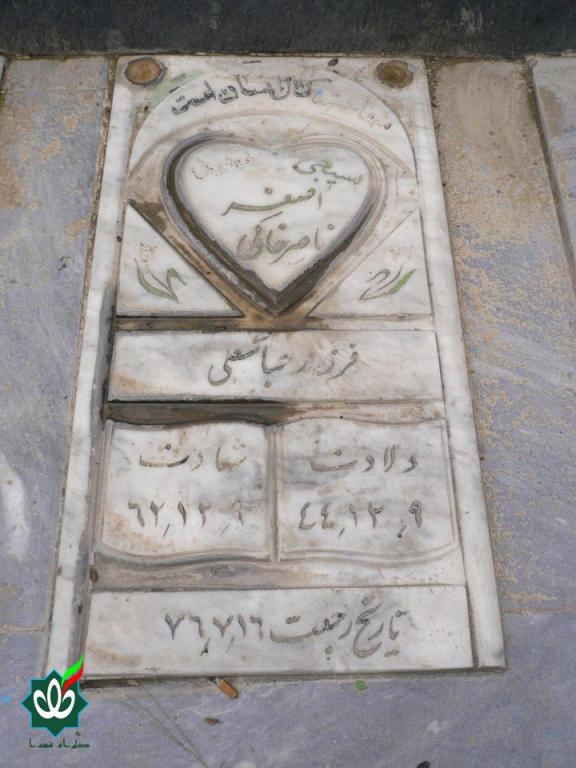 شهادت کمال انسان است
شهید بسیجی
اصغر
ناصر خاکی
فرزند عباسعلی
ولادت
۴۴٫۱۲٫۹
شهادت
۶۲٫۱۲٫۹
تاریخ رجعت ۷۶٫۷٫۱۶